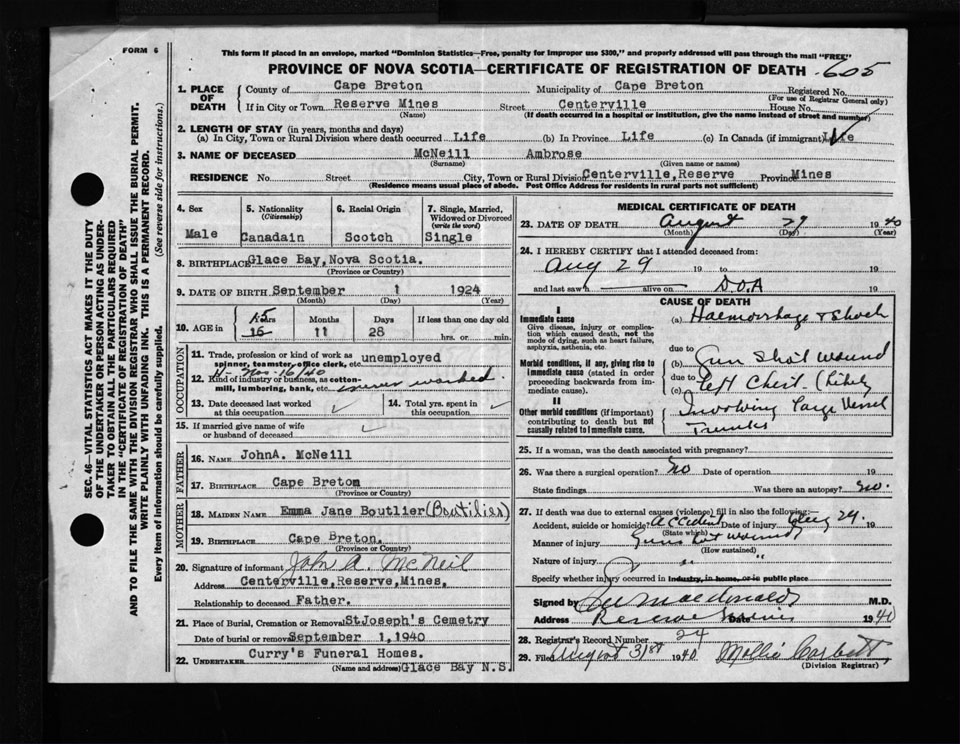 FORM 6
This form if placed in an envelope, marked "Dominion Statistics—Free, penalty for improper use $300," and properly addressed will pass through the mail "FREE"
PROVINCE OF NOVA SCOTIA—CERTIFICATE OF REGISTRATION OF DEATH 605
1. PLACE OF DEATH
County of Cape Breton Municipality of Cape Breton Registered No.
(For use of Registrar General only)
If in City or Town Reserve Mines Street Centerville House No.
(Name) (If death occurred in a hospital or institution, give the name instead of street and number)
2. LENGTH OF STAY (in years, months and days)
(a) In City, Town or Rural Division where death occurred Life (b) In Province Life (c) In Canada (if immigrant) Life
3. NAME OF DECEASED McNeill Ambrose
(Surname) (Given name or names)
RESIDENCE No. Street City, Town or Rural Division Centerville, Reserve Province Mines
(Residence means usual place of abode. Post Office Address for residents in rural parts not sufficient)
4. Sex Male
5. Nationality (Citizenship) Canadain
6. Racial Origin Scotch
7. Single, Married, Widowed or Divorced (write the word) Single
8. BIRTHPLACE Glace Bay, Nova Scotia.
(Province or Country)
9. DATE OF BIRTH September 1 1924
(Month) (Day) (Year)
10. AGE in Years Months Days If less than one day old
15
16 11 28 hrs. or min.
OCCUPATION
11. Trade, profession or kind of work as spinner, teamster, office clerk, etc. unemployed
H- Nov-16/40
12. Kind of industry or business, as cotton-mill, lumbering, bank, etc. never worked.
13. Date deceased last worked at this occupation
14. Total yrs. spent in this occupation
15. If married give name of wife or husband of deceased
FATHER
16. NAME JohnA. McNeill
17. BIRTHPLACE Cape Breton
(Province or Country)
MOTHER
18. MAIDEN NAME Emma Jane Boutlier (Boutilier)
19. BIRTHPLACE Cape Breton.
(Province or Country)
20. Signature of informant John A. McNeil
Address Centerville, Reserve, Mines.
Relationship to deceased Father.
21. Place of Burial, Cremation or Removal StJoseph's Cemetry
Date of burial or removal September 1, 1940
22. UNDERTAKER Curry's Funeral Homes.
(Name and address) Glace Bay N.S.
MEDICAL CERTIFICATE OF DEATH
23. DATE OF DEATH August 29 1940
(Month) (Day) (Year)
24. I HEREBY CERTIFY that I attended deceased from:
Aug 29 19 to 19
and last saw h alive on D.O.A 19
CAUSE OF DEATH
I
Immediate cause (a) Haemorrhage & Shock
Give disease, injury or complication which caused death, not the mode of dying, such as heart failure, asphyxia, asthenia, etc.
due to
Morbid conditions, if any, giving rise to immediate cause (stated in order proceeding backwards from immediate cause).
(b) Gun Shot wound
due to
(c) Left Chest. (Likely
II
Other morbid conditions (if important) contributing to death but not causally related to immediate cause.
Involving Large Vessel
Trunks
25. If a woman, was the death associated with pregnancy?
26. Was there a surgical operation? No Date of operation 19
State findings Was there an autopsy? No.
27. If death was due to external causes (violence) fill in also the following:
Accident, suicide or homicide? accident Date of injury Aug 29. 19
(State which)
Manner of injury Guns hot wound
(How sustained)
Nature of injury " "
Specify whether injury occurred in industry, in home, or in public place
Signed by MacDonald M.D.
Address Reserve Mines Date 1940
28. Registrar's Record Number 24
29. Filed August 31st 1940 Mollie Corbett
(Division Registrar)
SEC. 46—VITAL STATISTICS ACT MAKES IT THE DUTY
OF THE UNDERTAKER OR PERSON ACTING AS UNDER-
TAKER TO OBTAIN ALL THE PARTICULARS REQUIRED
IN THE "CERTIFICATE OF REGISTRATION OF DEATH"
AND TO FILE THE SAME WITH THE DIVISION REGISTRAR WHO SHALL ISSUE THE BURIAL PERMIT.
WRITE PLAINLY WITH UNFADING INK. THIS IS A PERMANENT RECORD.
Every item of Information should be carefully supplied. (See reverse side for instructions.)